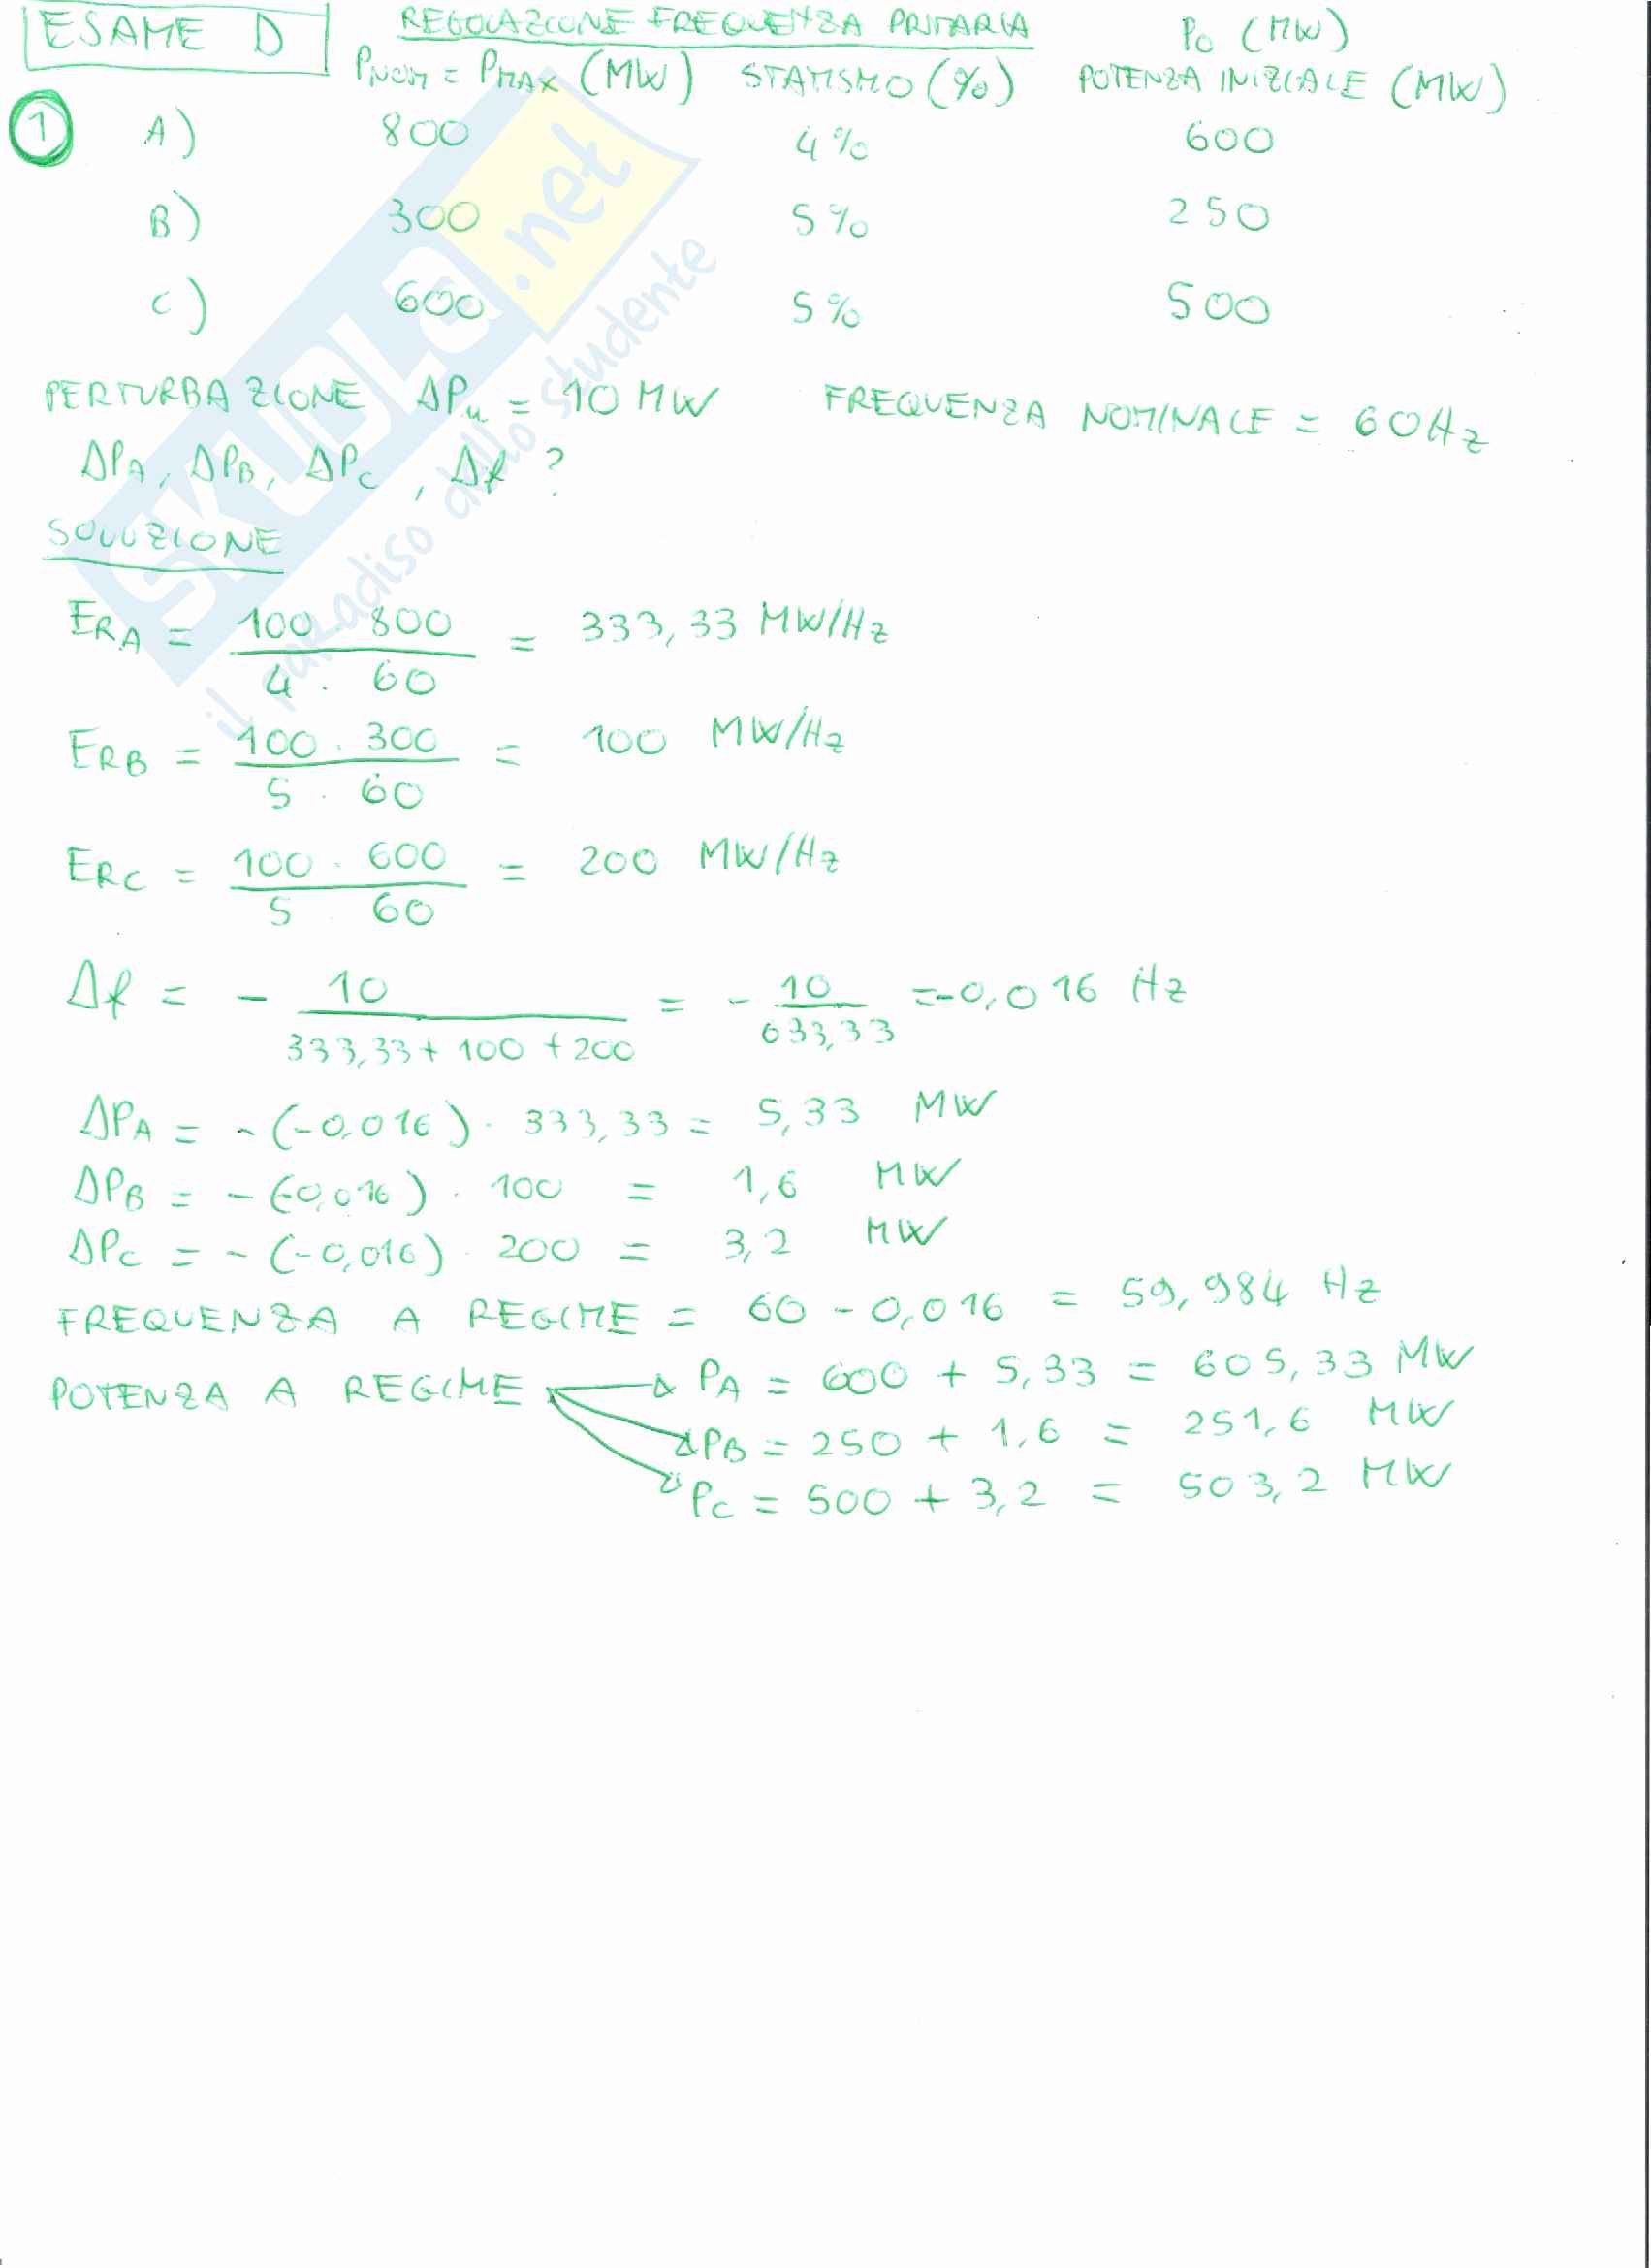 ESAME D
REGOLAZIONE FREQUENZA PRIMARIA
P0 (MW)
PNOM = PMAX (MW) STATISMO (%) POTENZA INIZIALE (MW)
1 A) 800 4% 600
B) 300 5% 250
C) 600 5% 500
PERTURBAZIONE ΔPu = 10 MW FREQUENZA NOMINALE = 60Hz
ΔPA, ΔPB, ΔPC, Δf ?
SOLUZIONE
ERA = 100 · 800 / 4 · 60 = 333,33 MW/Hz
ERB = 100 · 300 / 5 · 60 = 100 MW/Hz
ERC = 100 · 600 / 5 · 60 = 200 MW/Hz
Δf = - 10 / 333,33 + 100 + 200 = - 10 / 633,33 = -0,016 Hz
ΔPA = - (-0,016) · 333,33 = 5,33 MW
ΔPB = - (-0,016) · 100 = 1,6 MW
ΔPC = - (-0,016) · 200 = 3,2 MW
FREQUENZA A REGIME = 60 - 0,016 = 59,984 Hz
POTENZA A REGIME → PA = 600 + 5,33 = 605,33 MW
PB = 250 + 1,6 = 251,6 MW
PC = 500 + 3,2 = 503,2 MW
SKUOLA.net
il paradiso dello studente